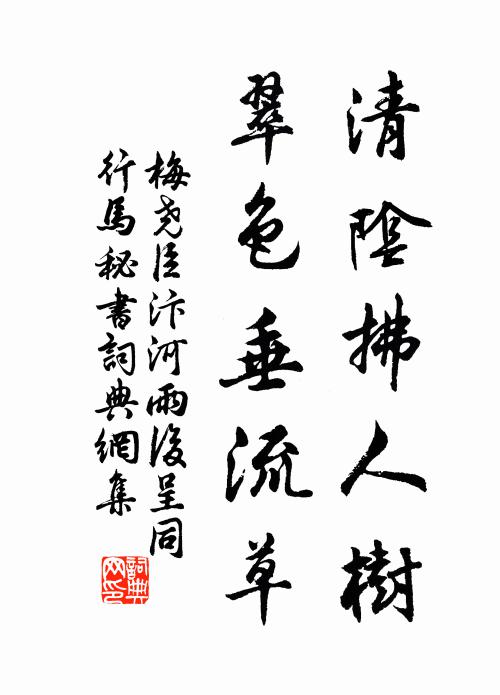 清陰拂人樹
翠色垂流草
梅堯臣汴河雨後呈同
行馬秘書詞典網集
詞典網印